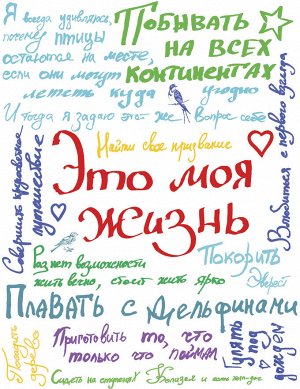 Я всегда удивляюсь,
почему птицы
остаются на месте,
если они могут
лететь куда угодно
И тогда я задаю этот же вопрос себе
Побывать
на всех
континентах
Найти свое призвание
Совершить кругосветное
путешествие
Это моя
жизнь
Влюбиться с первого взгляда
Раз нет возможности
жить вечно, стоит жить ярко
Покорить
Эверест
Плавать с дельфинами
Посадить
дерево
Приготовить то, что
только что поймал
Гулять
под
дождем
Сидеть на ступенях